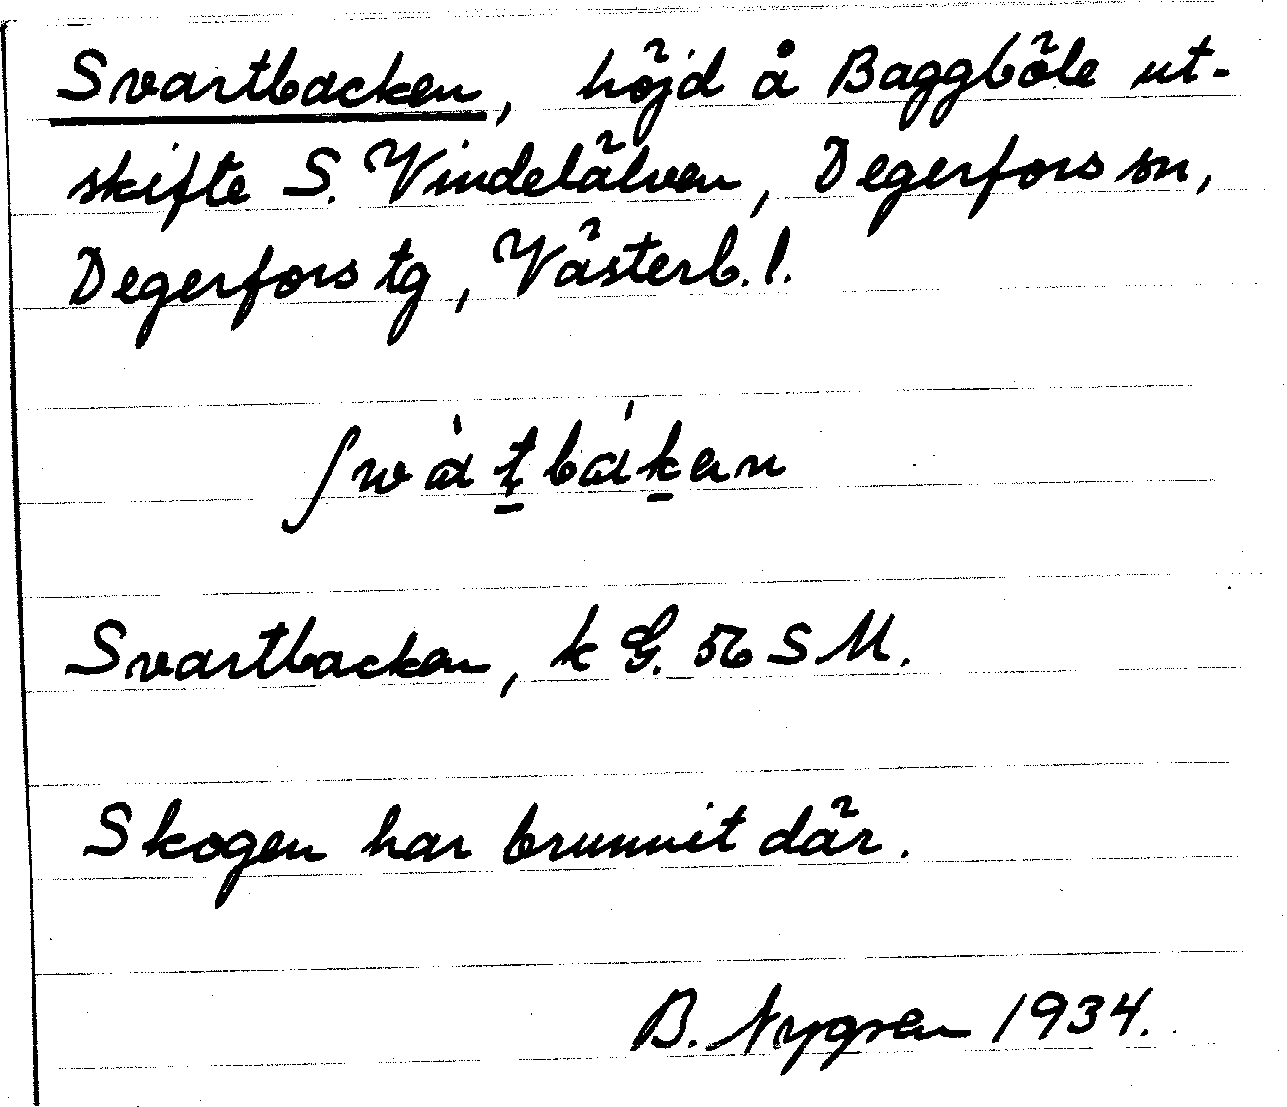 Svartbacken, höjd å Baggböle ut-
skifte S. Vindelälven, Degerfors sn,
Degerfors tg, Västerb. l.
ʃwàt̠bák̠en
Svartbacken, k G. 56 S M.
Skogen har brunnit där.
B. Nygren 1934.